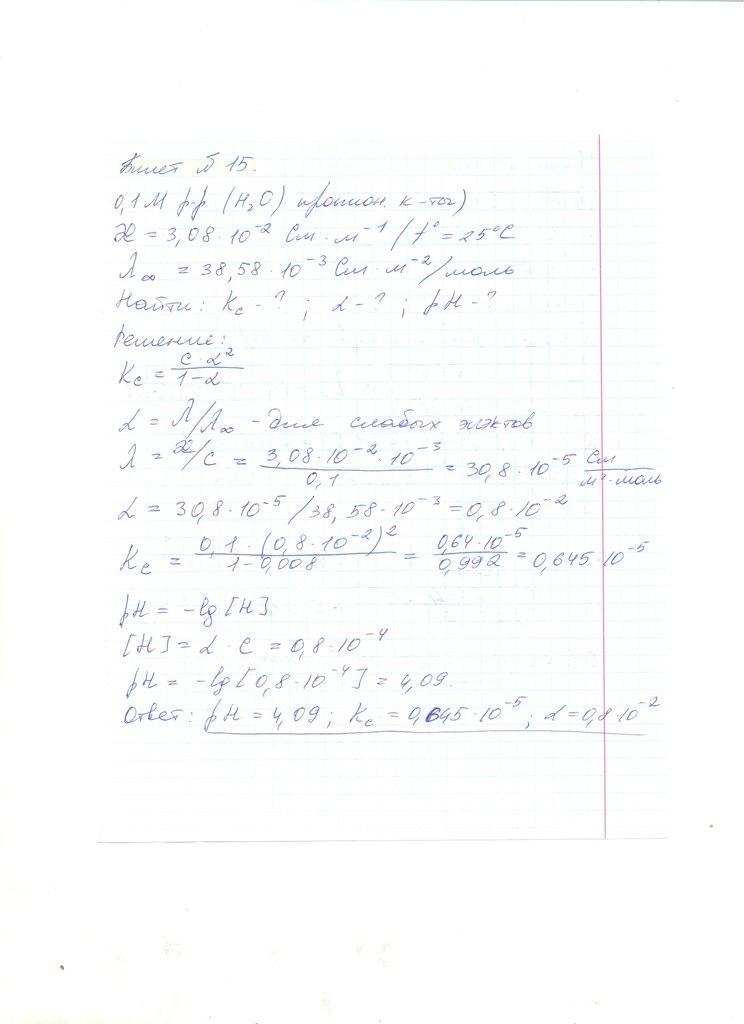 Билет № 15.
0,1 М р-р (H₂O) пропион. к-ты)
æ = 3,08·10⁻² См·м⁻¹ / t° = 25°C
λ∞ = 38,58·10⁻³ См·м⁻²/моль
Найти: Kc - ? ; α - ? ; pH - ?
Решение:
Kc = c·α² / 1-α
α = λ/λ∞ - для слабых эл-тов
λ = æ/c = 3,08·10⁻²·10⁻³ / 0,1 = 30,8·10⁻⁵ См / м²·моль
α = 30,8·10⁻⁵ / 38,58·10⁻³ = 0,8·10⁻²
Kc = 0,1·(0,8·10⁻²)² / 1-0,008 = 0,64·10⁻⁵ / 0,992 = 0,645·10⁻⁵
pH = -lg[H]
[H] = α·c = 0,8·10⁻⁴
pH = -lg[0,8·10⁻⁴] = 4,09.
Ответ: pH = 4,09; Kc = 0,645·10⁻⁵; α = 0,8·10⁻²